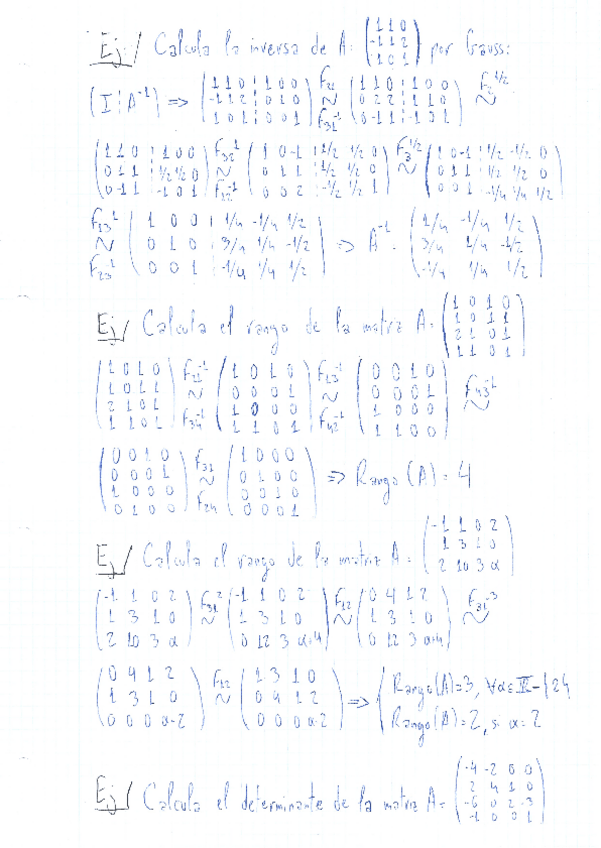 Ej/ Calcula la inversa de A = (1 1 0; -1 1 2; 1 0 1) por Gauss:
(I | A⁻¹) => (1 1 0 | 1 0 0; -1 1 2 | 0 1 0; 1 0 1 | 0 0 1) F21 ~ F31⁻¹ (1 1 0 | 1 0 0; 0 2 2 | 1 1 0; 0 -1 1 | -1 0 1) F2^1/2 ~
(1 1 0 | 1 0 0; 0 1 1 | 1/2 1/2 0; 0 -1 1 | -1 0 1) ~ (1 0 -1 | 1/2 -1/2 0; 0 1 1 | 1/2 1/2 0; 0 0 2 | -1/2 1/2 1) F3^1/2 ~ (1 0 -1 | 1/2 -1/2 0; 0 1 1 | 1/2 1/2 0; 0 0 1 | -1/4 1/4 1/2)
F13¹ ~ F23⁻¹ (1 0 0 | 1/4 -1/4 1/2; 0 1 0 | 3/4 1/4 -1/2; 0 0 1 | -1/4 1/4 1/2) => A⁻¹ = (1/4 -1/4 1/2; 3/4 1/4 -1/2; -1/4 1/4 1/2)
Ej/ Calcula el rango de la matriz A = (1 0 1 0; 1 0 1 1; 2 1 0 1; 1 1 0 1)
(1 0 1 0; 1 0 1 1; 2 1 0 1; 1 1 0 1) F21⁻¹ ~ F34⁻¹ (1 0 1 0; 0 0 0 1; 1 0 0 0; 1 1 0 1) F13⁻¹ ~ F42⁻¹ (0 0 1 0; 0 0 0 1; 1 0 0 0; 1 1 0 0) F43⁻¹ ~
(0 0 1 0; 0 0 0 1; 1 0 0 0; 0 1 0 0) F31 ~ F24 (1 0 0 0; 0 1 0 0; 0 0 1 0; 0 0 0 1) => Rango (A) = 4
Ej/ Calcula el rango de la matriz A = (-1 1 0 2; 1 3 1 0; 2 10 3 α)
(-1 1 0 2; 1 3 1 0; 2 10 3 α) F31² ~ (-1 1 0 2; 1 3 1 0; 0 12 3 α+4) F12 ~ (0 4 1 2; 1 3 1 0; 0 12 3 α+4) F31⁻³ ~
(0 4 1 2; 1 3 1 0; 0 0 0 α-2) F12 ~ (1 3 1 0; 0 4 1 2; 0 0 0 α-2) => { Rango(A)=3, ∀α∈ℝ-{2}
Rango(A)=2, si α=2
Ej/ Calcula el determinante de la matriz A = (-4 -2 0 0; 2 4 1 0; -6 0 2 -3; -1 0 0 1)